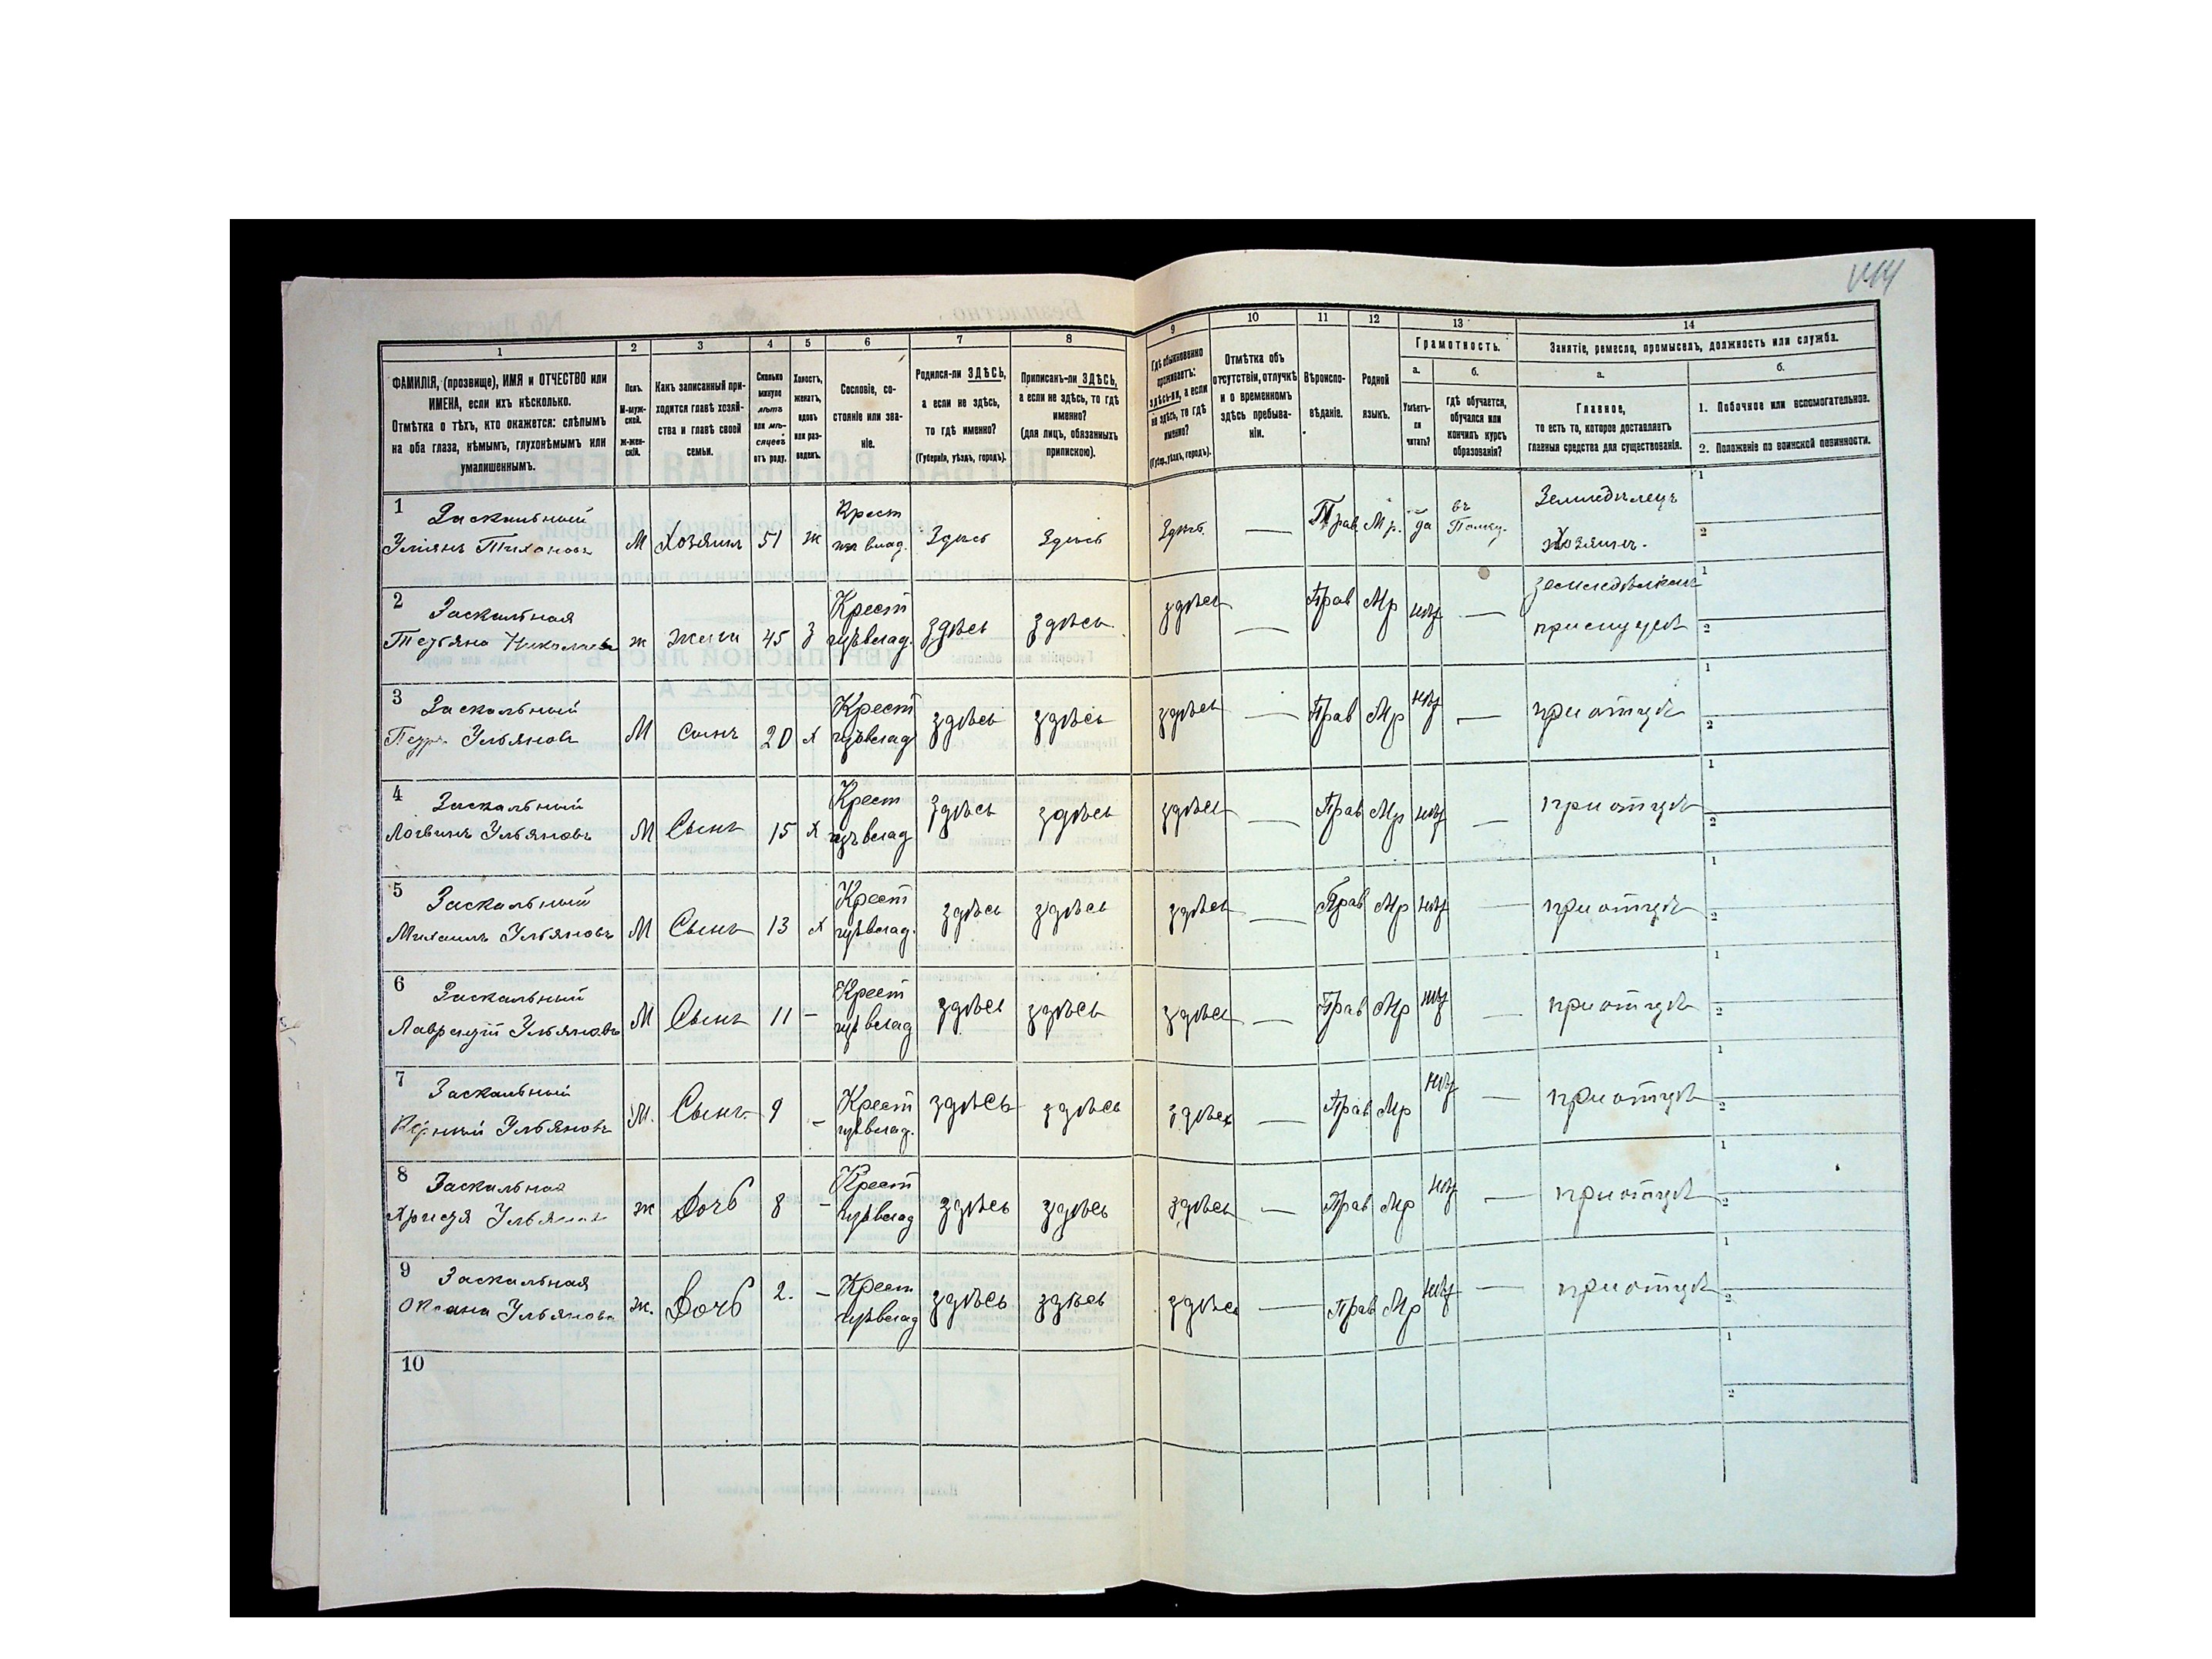 1
2
3
4
5
6
7
8
9
10
11
12
13
14
ФАМИЛІЯ, (прозвище), ИМЯ и ОТЧЕСТВО или
ИМЕНА, если ихъ нѣсколько.
Отмѣтка о тѣхъ, кто окажется: слѣпымъ
на оба глаза, нѣмымъ, глухонѣмымъ или
умалишеннымъ.
Полъ.
М-муж-
ской.
Ж-жен-
скій.
Какъ записанный при-
ходится главѣ хозяй-
ства и главѣ своей
семьи.
Сколько
минуло
лѣтъ
или мѣ-
сяцевъ
отъ роду.
Холостъ,
женатъ,
вдовъ
или раз-
веденъ.
Сословіе, со-
стояніе или зва-
ніе.
Родился-ли ЗДѢСЬ,
а если не здѣсь,
то гдѣ именно?
(Губернія, уѣздъ, городъ).
Приписанъ-ли ЗДѢСЬ,
а если не здѣсь, то гдѣ
именно?
(для лицъ, обязанныхъ
припискою).
Гдѣ обыкновенно
проживаетъ:
здѣсь-ли, а если
не здѣсь, то гдѣ
именно?
(Губер., уѣздъ, городъ).
Отмѣтка объ
отсутствіи, отлучкѣ
и о временномъ
здѣсь пребыва-
ніи.
Вѣроиспо-
вѣданіе.
Родной
языкъ.
Грамотность.
а.
Умѣетъ-
ли
читать?
б.
Гдѣ обучается,
обучался или
кончилъ курсъ
образованія?
Занятіе, ремесло, промыселъ, должность или служба.
а.
Главное,
то есть то, которое доставляетъ
главныя средства для существованія.
б.
1. Побочное или вспомогательное.
2. Положеніе по воинской повинности.
1 Заскальный М Хозяинъ 51 ж Крест влад. Здѣсь Здѣсь Здѣсь — Прав Мр. да въ Земледѣлецъ 1
Тихоновъ Хозяинъ. 2
2 Заскальная ж жена 45 З Крест здѣсь здѣсь здѣсь — Прав Мр нѣт — 1
Николаева 2
3 Заскальный М сынъ 20 х Крест здѣсь здѣсь здѣсь — Прав Мр нѣт — при отцѣ 1
Петръ Ульяновъ 2
4 Заскальный М Сынъ 15 х Крест здѣсь здѣсь здѣсь — Прав Мр нѣт — при отцѣ 1
Логвинъ Ульяновъ 2
5 Заскальный М Сынъ 13 х Крест здѣсь здѣсь здѣсь — Прав Мр нѣт — при отцѣ 1
Михаилъ Ульяновъ 2
6 Заскальный М Сынъ 11 — Крест здѣсь здѣсь здѣсь — Прав Мр нѣт — при отцѣ 1
Ульяновъ 2
7 Заскальный М. Сынъ 9 — Крест здѣсь здѣсь здѣсь — Прав Мр нѣт — при отцѣ 1
Ульяновъ 2
8 Заскальная ж Дочь 8 — Крест здѣсь здѣсь здѣсь — Прав Мр нѣт — при отцѣ 1
Христя 2
9 Заскальная ж. Дочь 2. — Крест здѣсь здѣсь здѣсь — Прав Мр нѣт — при отцѣ 1
Оксана Ульянова 2
10 1
2